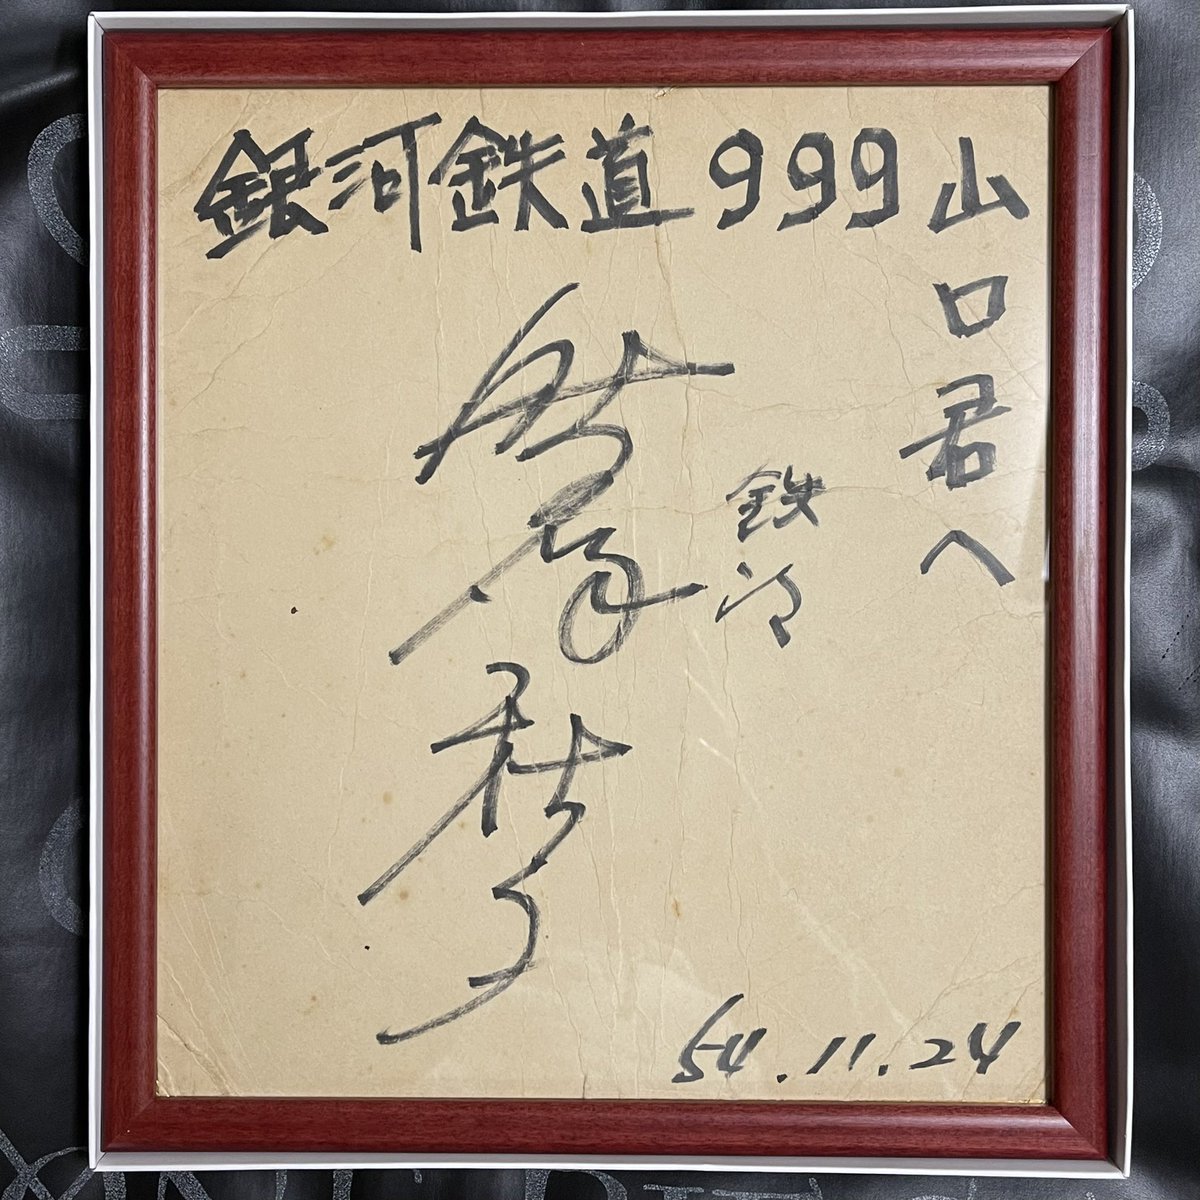 銀河鉄道999
山口君へ
鉄郎
54.11.24